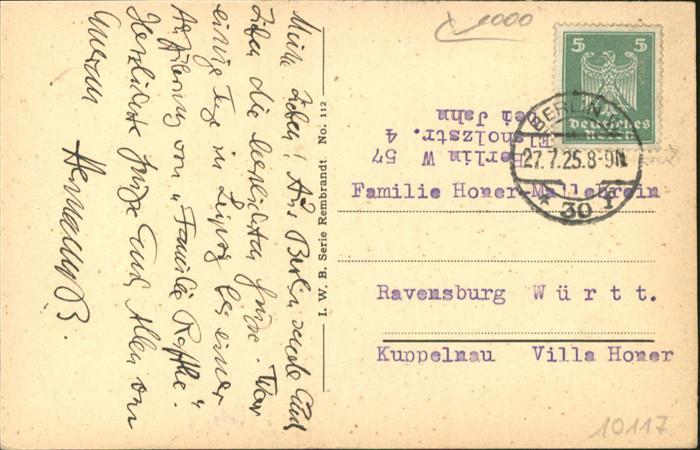 Meine Lieben! Aus Berlin sende Euch
Allen die herzlichsten Grüße. War
einige Tage in Leipzig bei einer
Aufführung von „Familie Raffke“.
Herzlichste Grüße Euch Allen von
Eurem
Hermann B.
I. W. B. Serie Rembrandt No. 112
1000
5 5
Deutsches
Reich
BERLIN W
27.7.25.8-9N
* 30 f
Berlin W 57
Elsholzstr. 4
bei Jahn
Familie Honer-Mallebrein
Ravensburg Württ.
Kuppelnau Villa Honer
10117